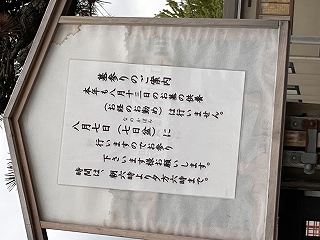 墓参りのご案内
本年も八月十三日のお墓の供養
(お経のお勤め)は行いません。
八月七日(七日盆)に
なのかぼん
行いますのでお参り
下さいます様お願いします。
時間は朝六時より夕方六時まで。